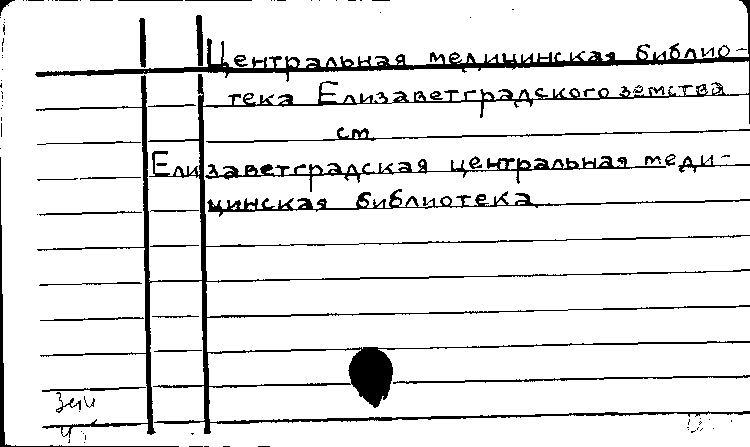 Центральная медицинская библио-
тека Елизаветградского земства
см.
Елизаветградская центральная меди-
цинская библиотека